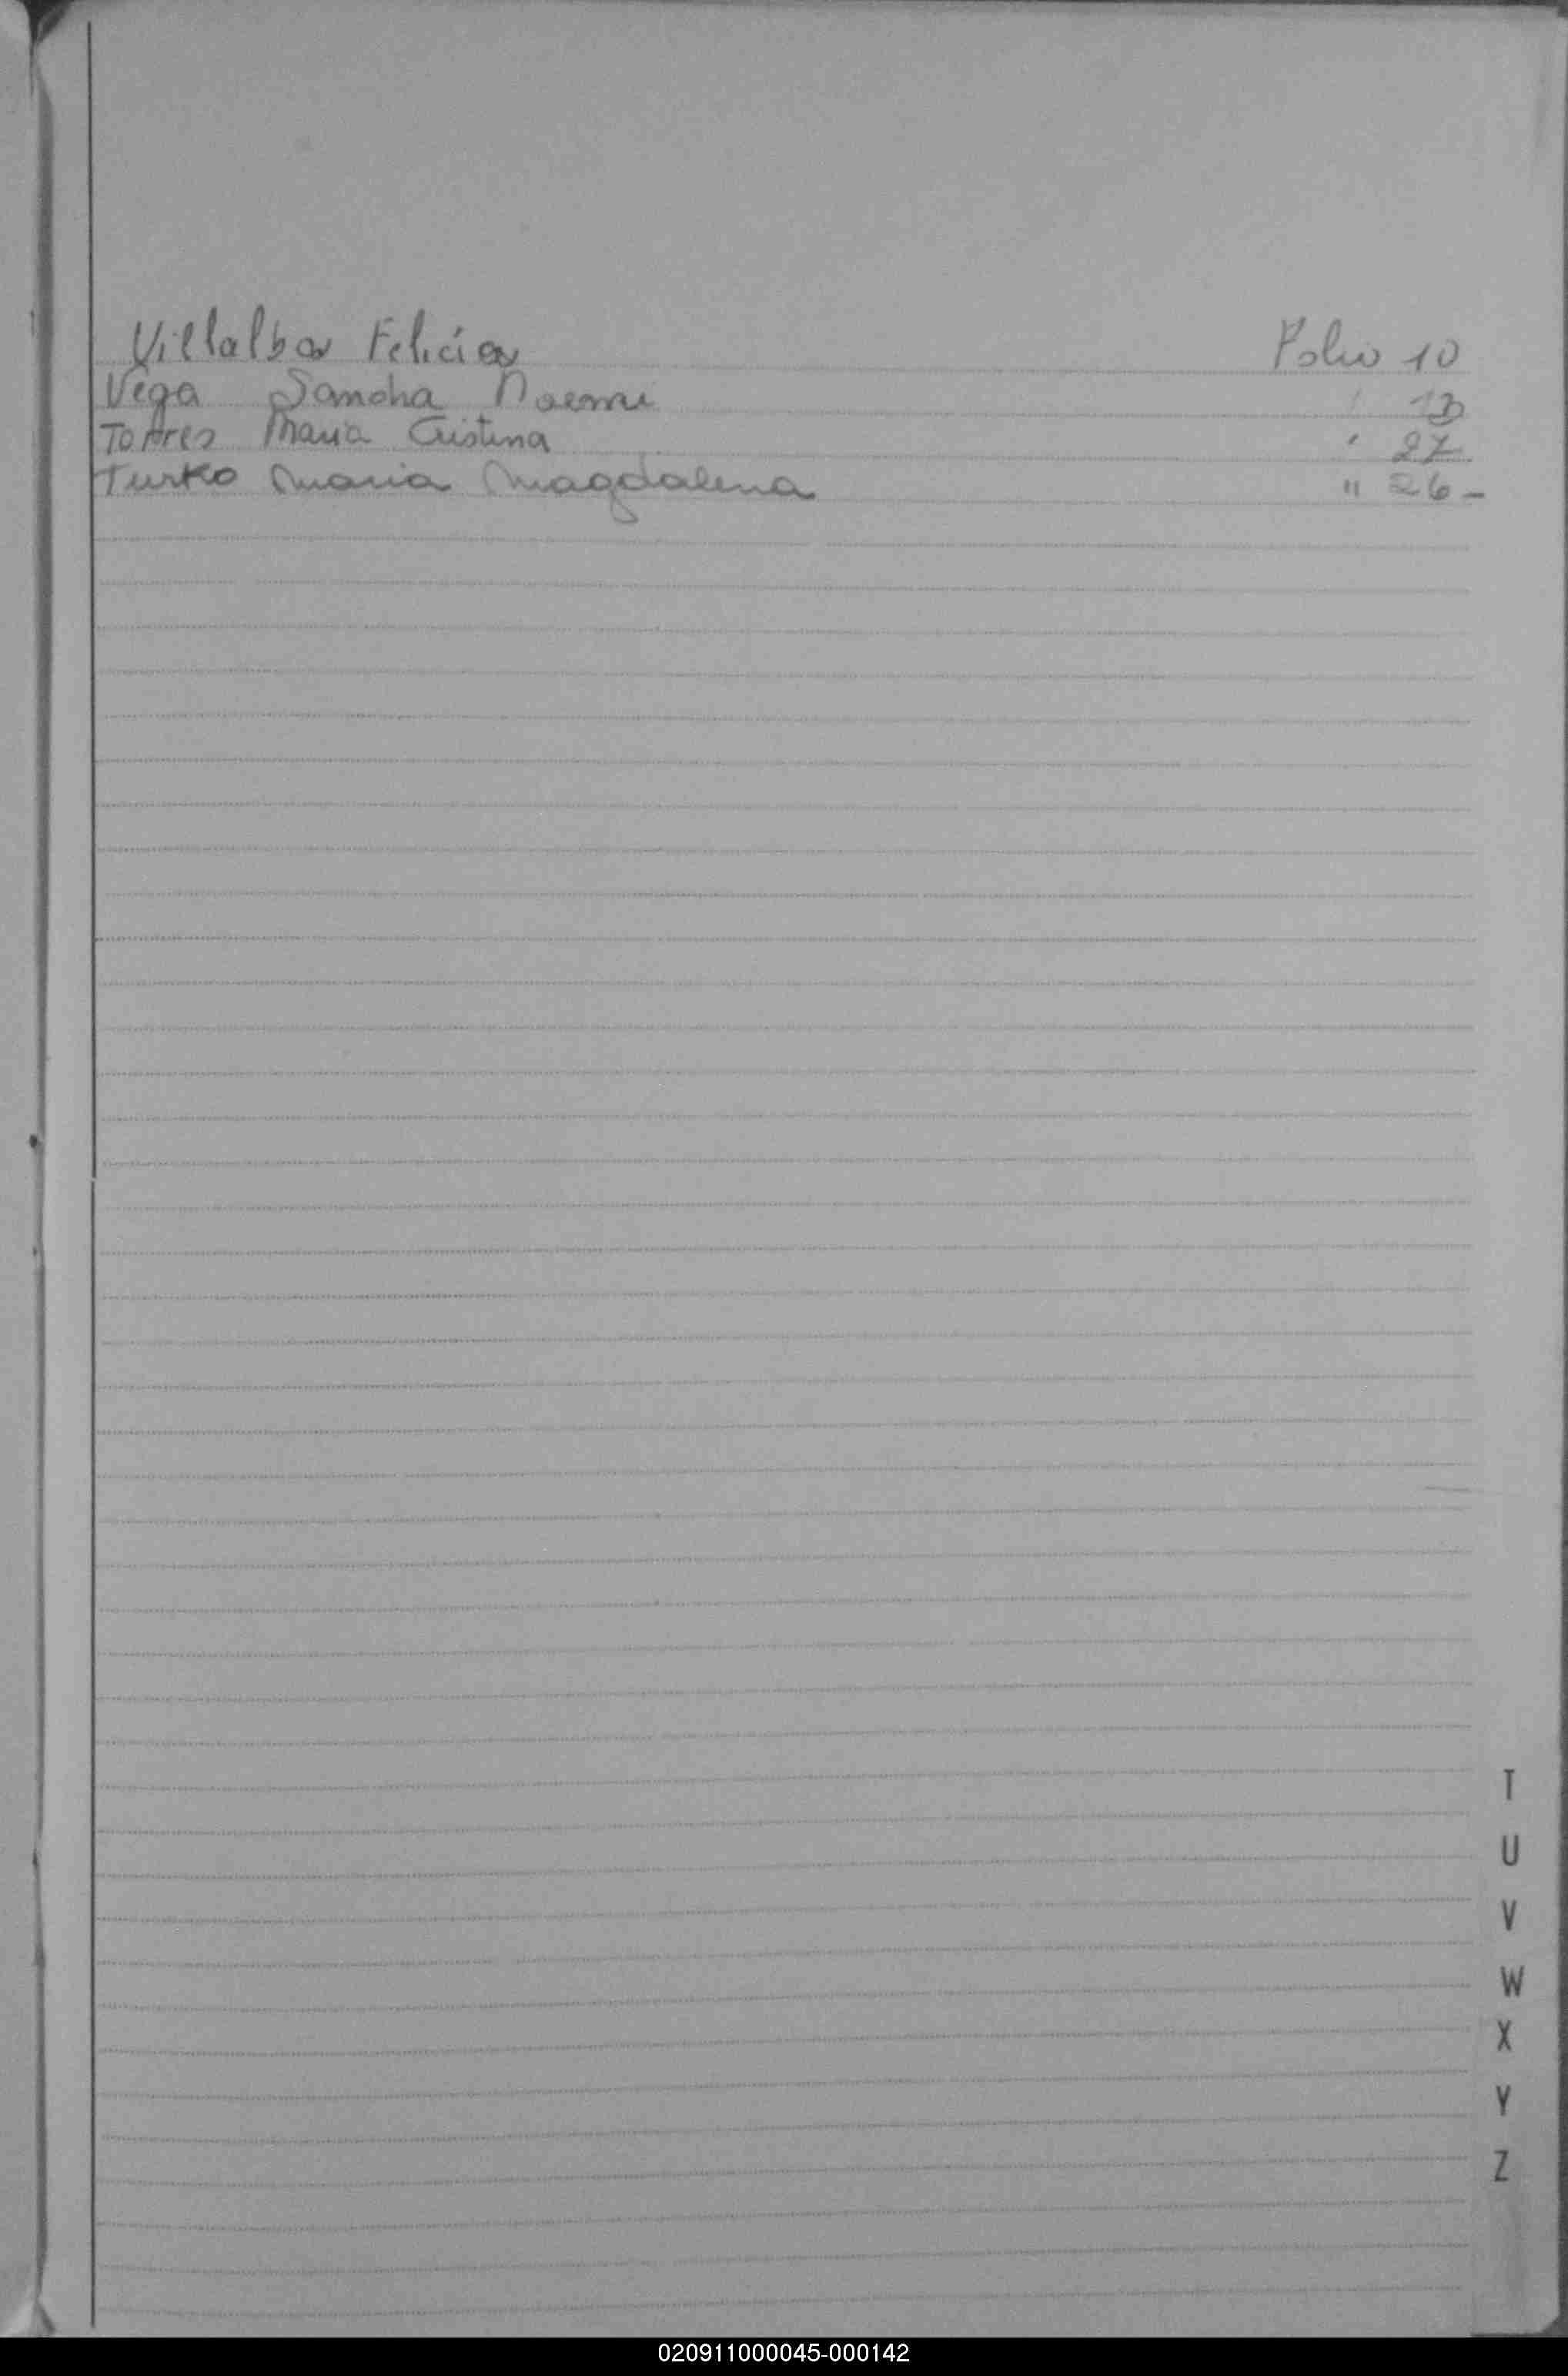 Villalba Felicia Folio 10
Vega Sandra Noemi " 13
Torres Maria Cristina " 27
Turko Maria Magdalena " 26-
T
U
V
W
X
Y
Z
020911000045-000142